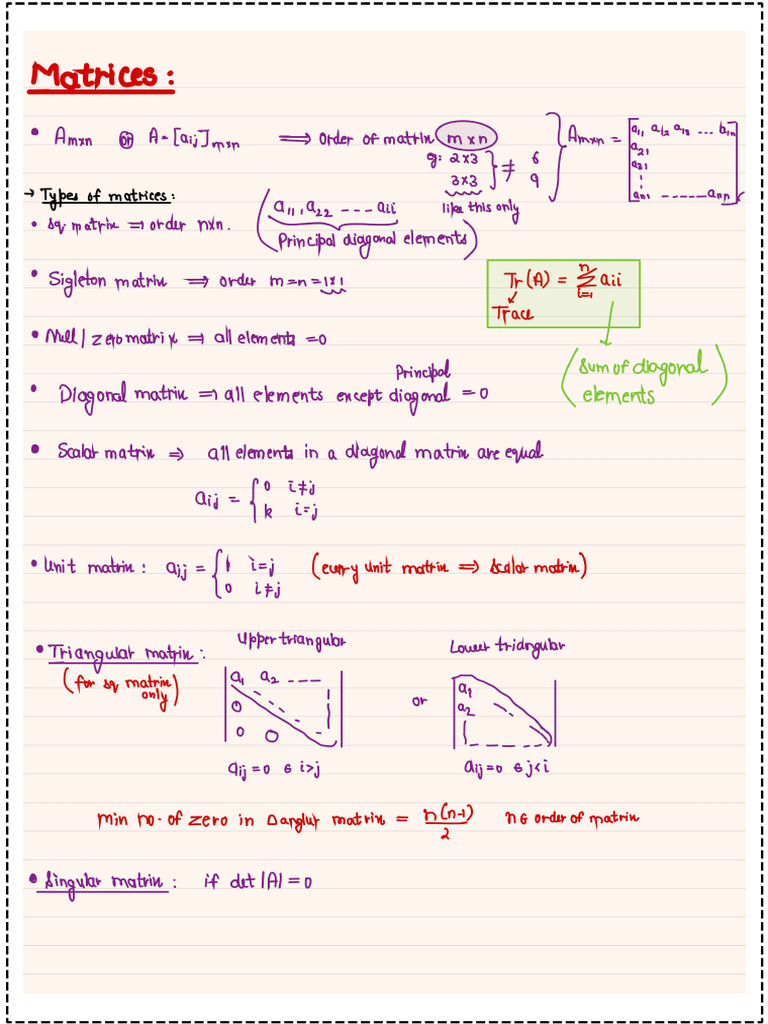 Matrices:
• Amxn or A=[aij]mxn ⟹ order of matrix mxn
g: 2x3
3x3
≠ 6
9
like this only
Amxn = [a11 a12 a13 ... b1n
a21
a31
⋮
an1 ...... ann]
→ Types of matrices:
• sq. matrix ⟹ order nxn. (a11, a22 --- aii
Principal diagonal elements)
• Sigleton matrix ⟹ order m=n=1x1
Tr(A) = n∑i=1 aii
Trace
(sum of diagonal
elements)
• Null/zero matrix ⟹ all elements =0
• Diagonal matrix ⟹ all elements except Principal diagonal =0
• Scalar matrix ⟹ all elements in a diagonal matrix are equal
aij = { 0 i≠j
k i=j
• Unit matrix: aij = { 1 i=j
0 i≠j
(every unit matrix ⟹ scalar matrix)
• Triangular matrix:
(for sq matrix
only)
Upper triangular
a1 a2 ---
0
0 0
aij=0 ∈ i>j
or
Lower triangular
a1
a2
aij=0 ∈ j<i
min no. of zero in ∆anglur matrix = n(n-1)/2 n∈ order of matrix
• Singular matrix: if det |A|=0